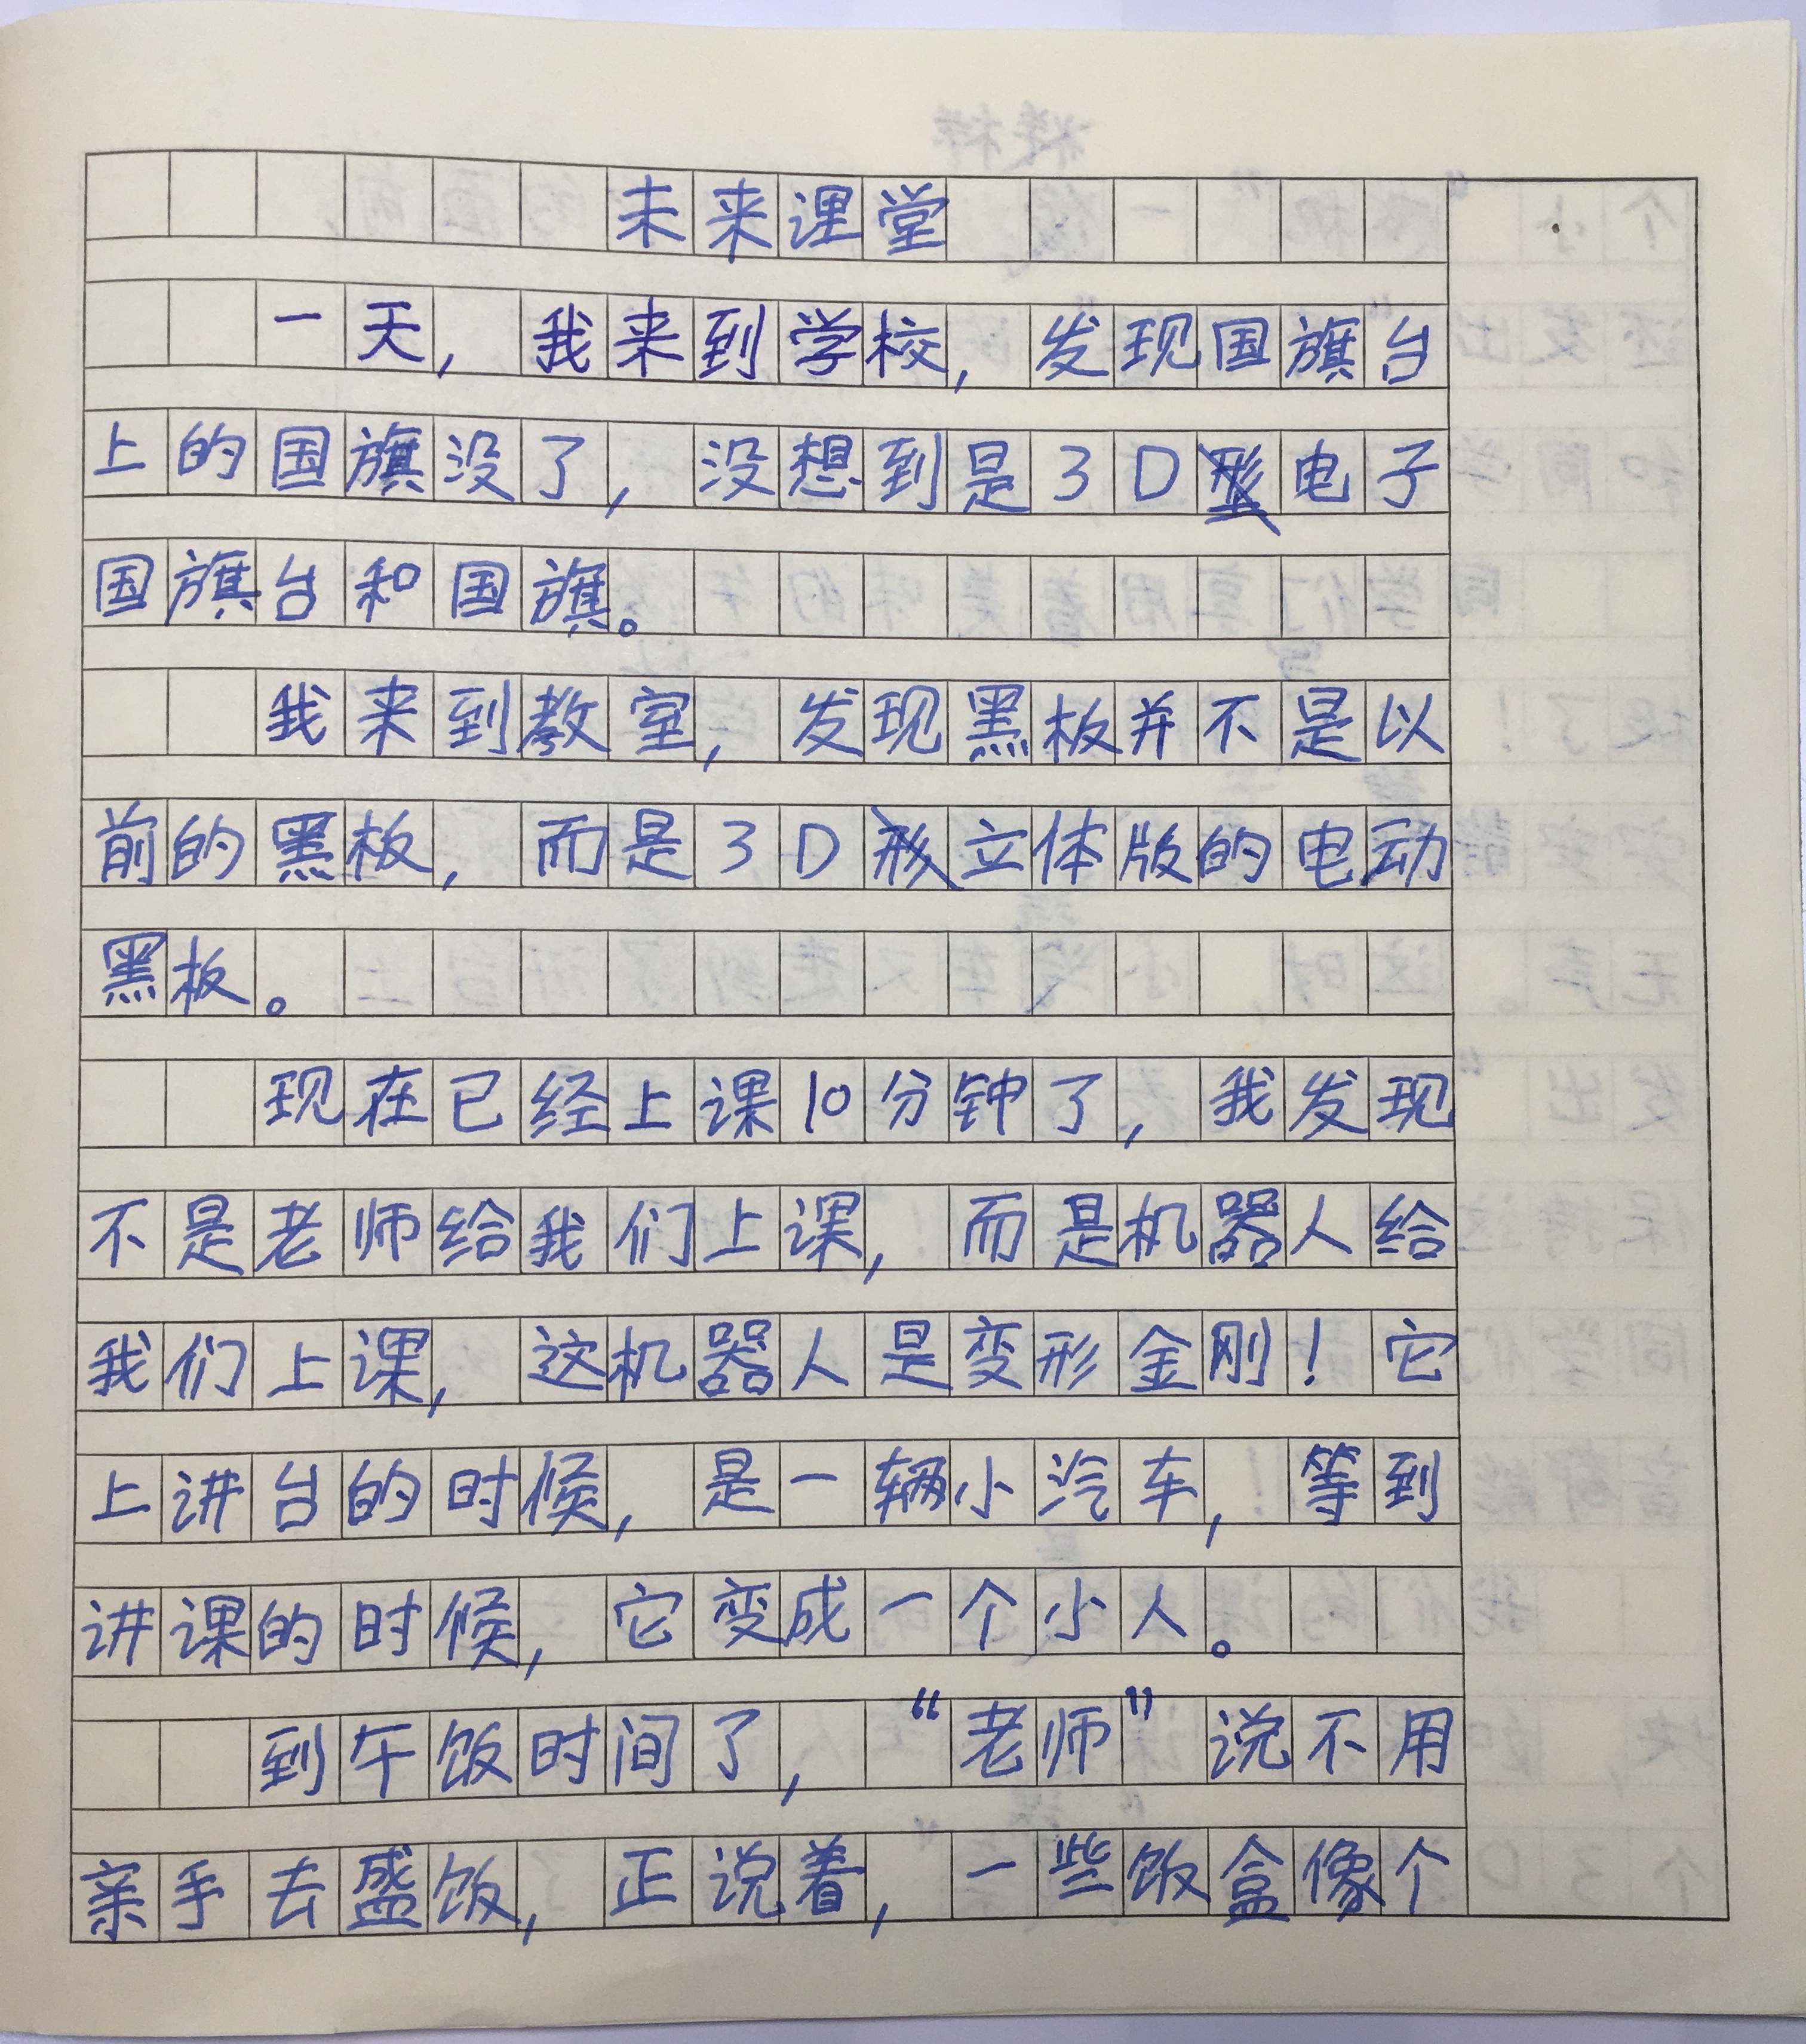 未来课堂
一天，我来到学校，发现国旗台
上的国旗没了，没想到是3D电子
国旗台和国旗。
我来到教室，发现黑板并不是以
前的黑板，而是3D立体版的电动
黑板。
现在已经上课10分钟了，我发现
不是老师给我们上课，而是机器人给
我们上课，这机器人是变形金刚！它
上讲台的时候，是一辆小汽车，等到
讲课的时候，它变成一个小人。
到午饭时间了，“老师”说不用
亲手去盛饭，正说着，一些饭盒像个